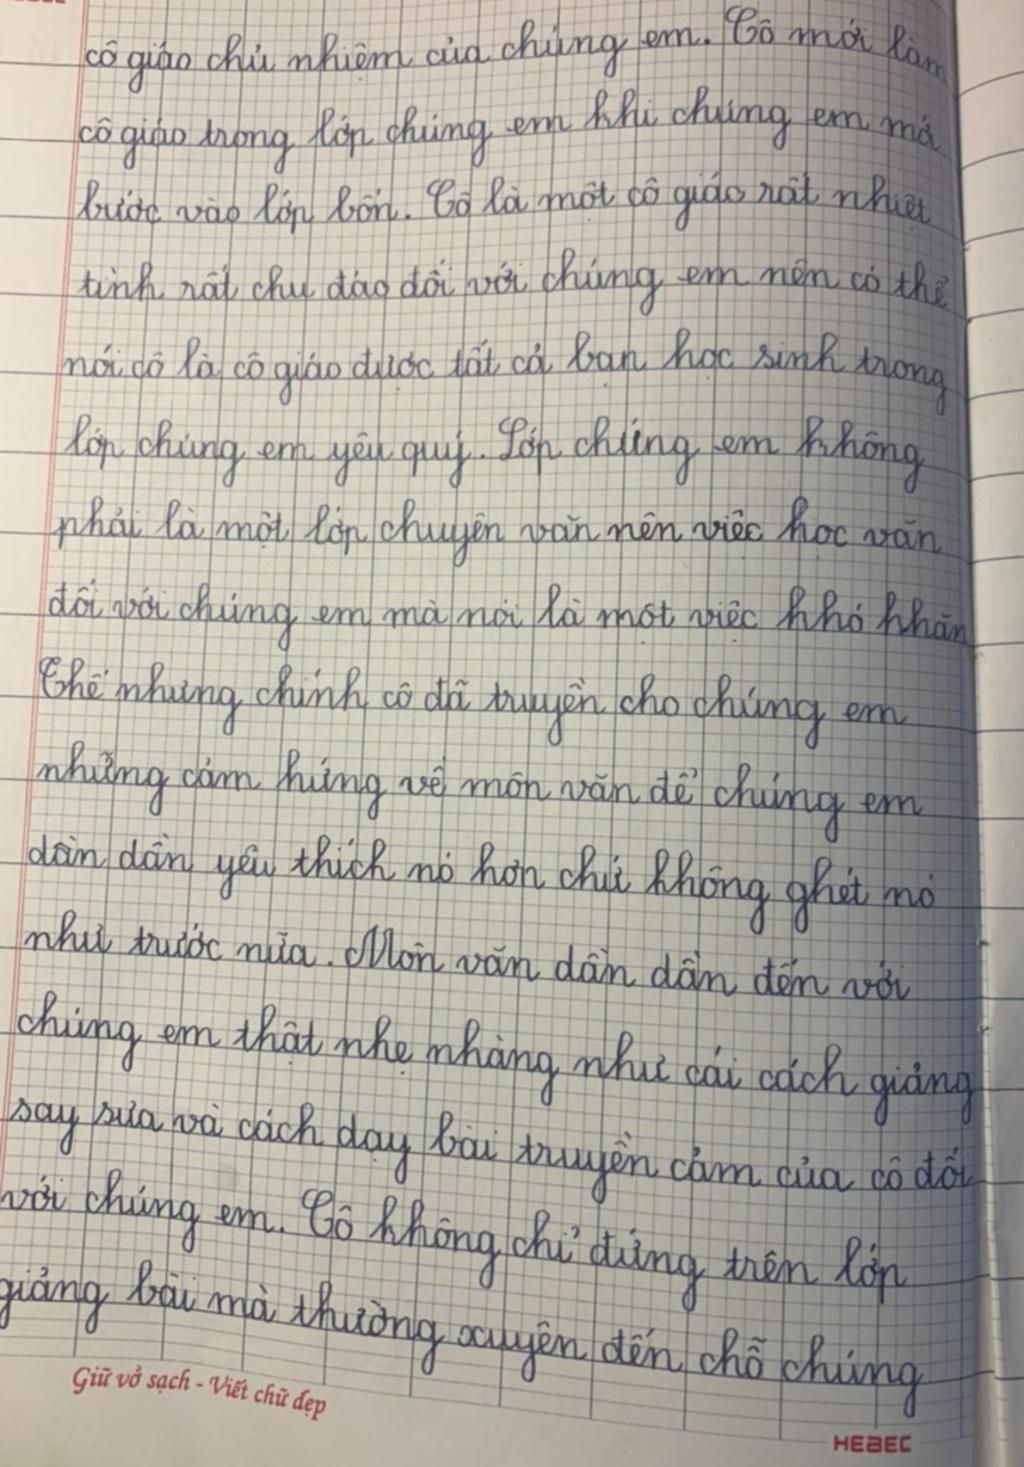 cô giáo chủ nhiệm của chúng em. Cô mới làm
cô giáo trong lớp chúng em khi chúng em mớ
bước vào lớp bốn. Cô là một cô giáo rất nhiệt
tình rất chu đáo đối với chúng em nên có thể
nói cô là cô giáo được tất cả bạn học sinh trong
lớp chúng em yêu quý. Lớp chúng em không
phải là một lớp chuyên văn nên việc học văn
đối với chúng em mà nói là một việc khó khăn
Thế nhưng chính cô đã truyền cho chúng em
những cảm hứng về môn văn để chúng em
dần dần yêu thích nó hơn chứ không ghét nó
như trước nữa. Môn văn dần dần đến với
chúng em thật nhẹ nhàng như cái cách giảng
say sưa và cách dạy bài truyền cảm của cô đối
với chúng em. Cô không chỉ đứng trên lớp
giảng bài mà thường xuyên đến chỗ chúng
Giữ vở sạch - Viết chữ đẹp
HEBEC